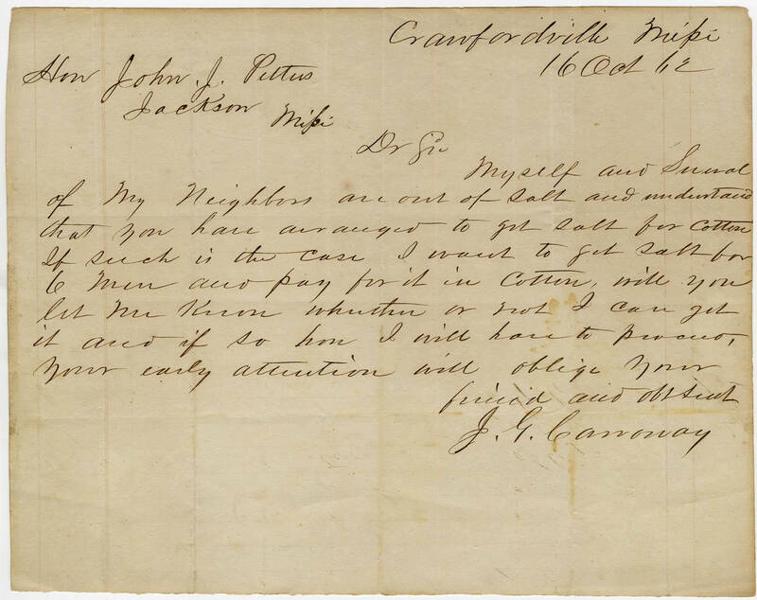 Crawfordville Missi
16 Oct 62
Hon John. J. Pettus
Jackson Missi
Dr Sir
Myself and Several
of My Neighbors are out of salt and understand
that you have arranged to get salt for cotton
If such is the case I want to get salt for
6 Men and pay for it in Cotton, will you
let Me Know whether or not I can get
it and if so how I will have to proceed,
Your early attention will oblige your
friend and obt servt
J. G. Carroway